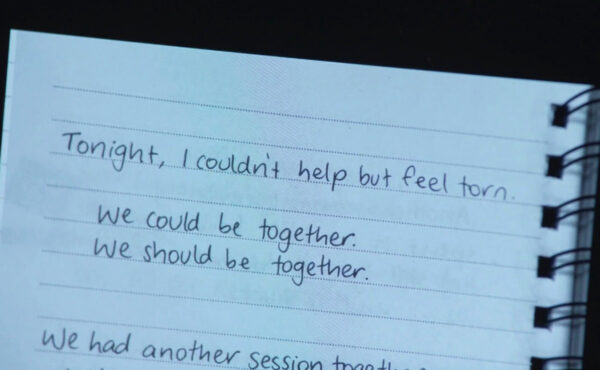 Tonight, I couldn't help but feel torn.
We could be together.
We should be together.
We had another session together